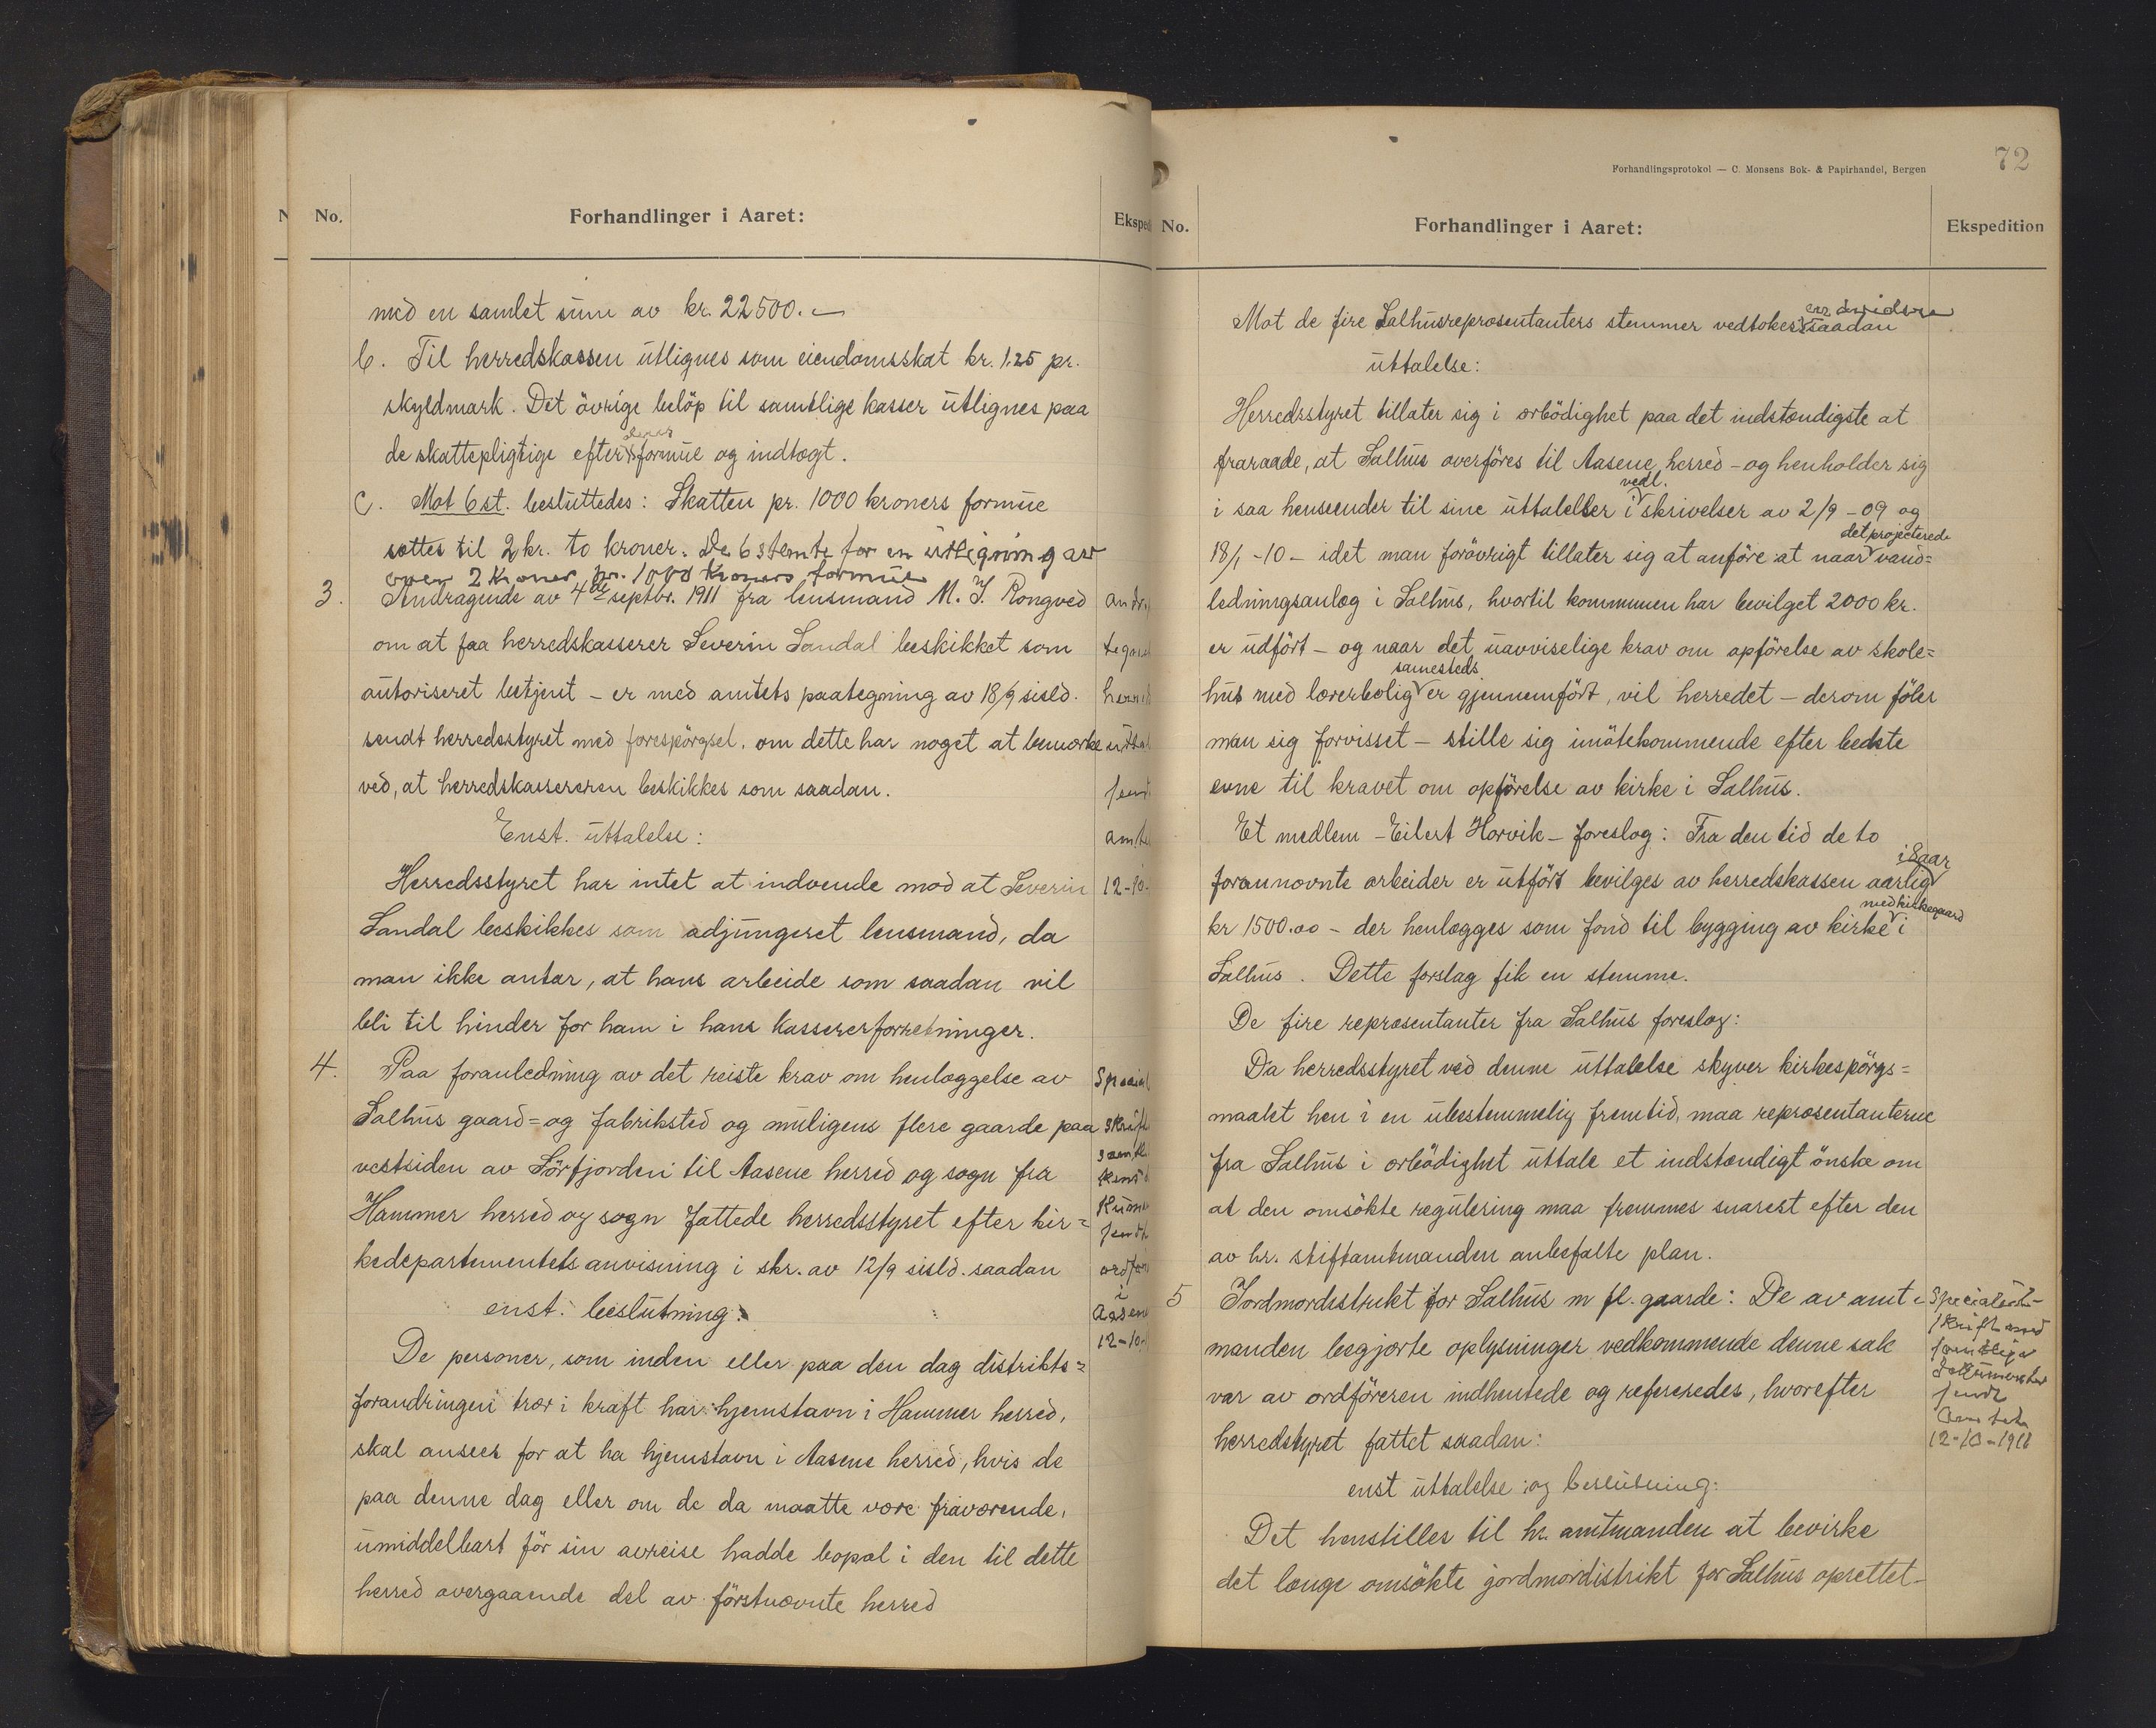 No.
Forhandlinger i Aaret:
med en samlet sum av kr. 22500.-
b. Til herredskassen utlignes som eiendomsskat kr. 1.25 pr.
skyldmark. Det övrige belöp til samtlige kasser utlignes paa
de skattepligtige efter deres formue og indtægt.
c. Mot 6 st. besluttedes: Skatten pr. 1000 kroners formue
sættes til 2 kr. to kroner. De 6 stemte for en utligning av
over 2 Kroner pr. 1000 Kroners formue
3. Andragende av 4de septbr. 1911 fra lensmand M. J. Rongved
om at faa herredskasserer Severin Sandal beskikket som
autoriseret betjent - er med amtets paategning av 18/9 sisld.
sendt herredsstyret med forespörgsel, om dette har noget at bemærke
ved, at herredskassereren beskikkes som saadan.
Enst. uttalelse:
Herredsstyret har intet at indvende mod at Severin
Sandal beskikkes som adjungeret lensmand, da
man ikke antar, at hans arbeide som saadan vil
bli til hinder for ham i hans kassererforretninger.
12-10-
4. Paa foranledning av det reiste krav om henlæggelse av
Salhus gaard= og fabriksted og muligens flere gaarde paa
vestsiden av Sörfjorden til Aasene herred og sogn fra
Hammer herred og sogn fattede herredsstyret efter kir=
kedepartementets anvisning i skr. av 12/9 sisld. saadan
enst. beslutning:
12-10-
De personer, som inden eller paa den dag distrikts=
forandringen trær i kraft har hjemstavn i Hammer herred,
skal ansees for at ha hjemstavn i Aasene herred, hvis de
paa denne dag eller om de da maatte være fraværende,
umiddelbart för sin avreise hadde bopæl i den til dette
herred overgaaende del av förstnævnte herred
72
Forhandlingsprotokol — C. Monsens Bok- & Papirhandel, Bergen
No.
Forhandlinger i Aaret:
Ekspedition
Mot de fire Salhusrepræsentanters stemmer vedtokes en saadan
uttalelse:
Herredsstyret tillater sig i ærbödighet paa det indstændigste at
fraraade, at Salhus overföres til Aasene herred - og henholder sig
i saa henseender til sine uttalelser i vedl. skrivelser av 2/9 - 09 og
18/1 - 10 - idet man forövrigt tillater sig at anföre at naar det projecterede vand=
ledningsanlæg i Salhus, hvortil kommunen har bevilget 2000 kr.
er udfört - og naar det uavviselige krav om opförelse av skole=
hus med lærerbolig samesteds er gjennemfört, vil herredet - derom föler
man sig forvisset - stille sig imötekommende efter bedste
evne til kravet om opförelse av kirke i Salhus.
Et medlem - Eilert Horvik - foreslog: Fra den tid de to
forannævnte arbeider er utfört bevilges av herredskassen aarlig i 8 aar
kr 1500.00 - der henlægges som fond til bygging av kirke med kirkegaard i
Salhus. Dette forslag fik en stemme.
De fire repræsentanter fra Salhus foreslog:
Da herredsstyret ved denne uttalelse skyver kirkespörgs=
maalet hen i en ubestemmelig fremtid, maa repræsentanterne
fra Salhus i ærbödighet uttale et indstændigt önske om
at den omsökte regulering maa fremmes snarest efter den
av hr. stiftamtmanden anbefalte plan.
5 Jordmordistrikt for Salhus m fl. gaarde: De av amt=
manden begjærte oplysninger vedkommende denne sak
var av ordföreren indhentede og refereredes, hvorefter
herredstyret fattet saadan:
Specialut-
skrift med
samtlige
dokumenter
sendt
Amtet
12-10-1911
enst uttalelse og beslutning:
Det henstilles til hr. amtmanden at bevirke
det længe omsökte jordmordistrikt for Salhus oprettet -